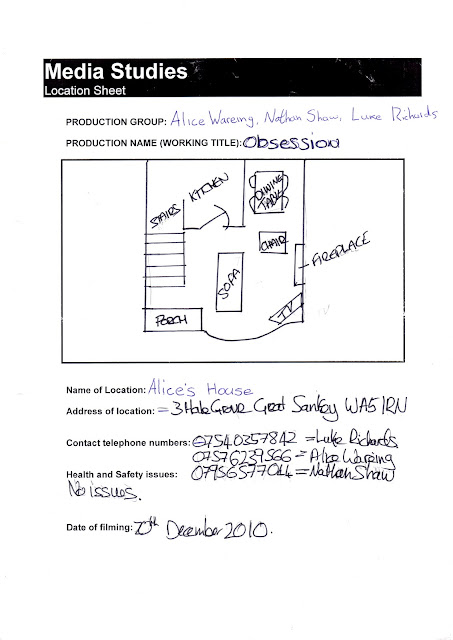 Media Studies
Location Sheet
PRODUCTION GROUP: Alice Wareing, Nathan Shaw, Luke Richards
PRODUCTION NAME (WORKING TITLE): Obsession
STAIRS
KITCHEN
DINING TABLE
CHAIR
FIREPLACE
SOFA
TV
PORCH
Name of Location: Alice's House
Address of location: = 3 Hale Grove Great Sankey WA5 1RN
Contact telephone numbers: 07540357842 = Luke Richards
07576239566 = Alice Wareing
Health and Safety issues: 07956577044 = Nathan Shaw
No issues.
Date of filming: December 2010.